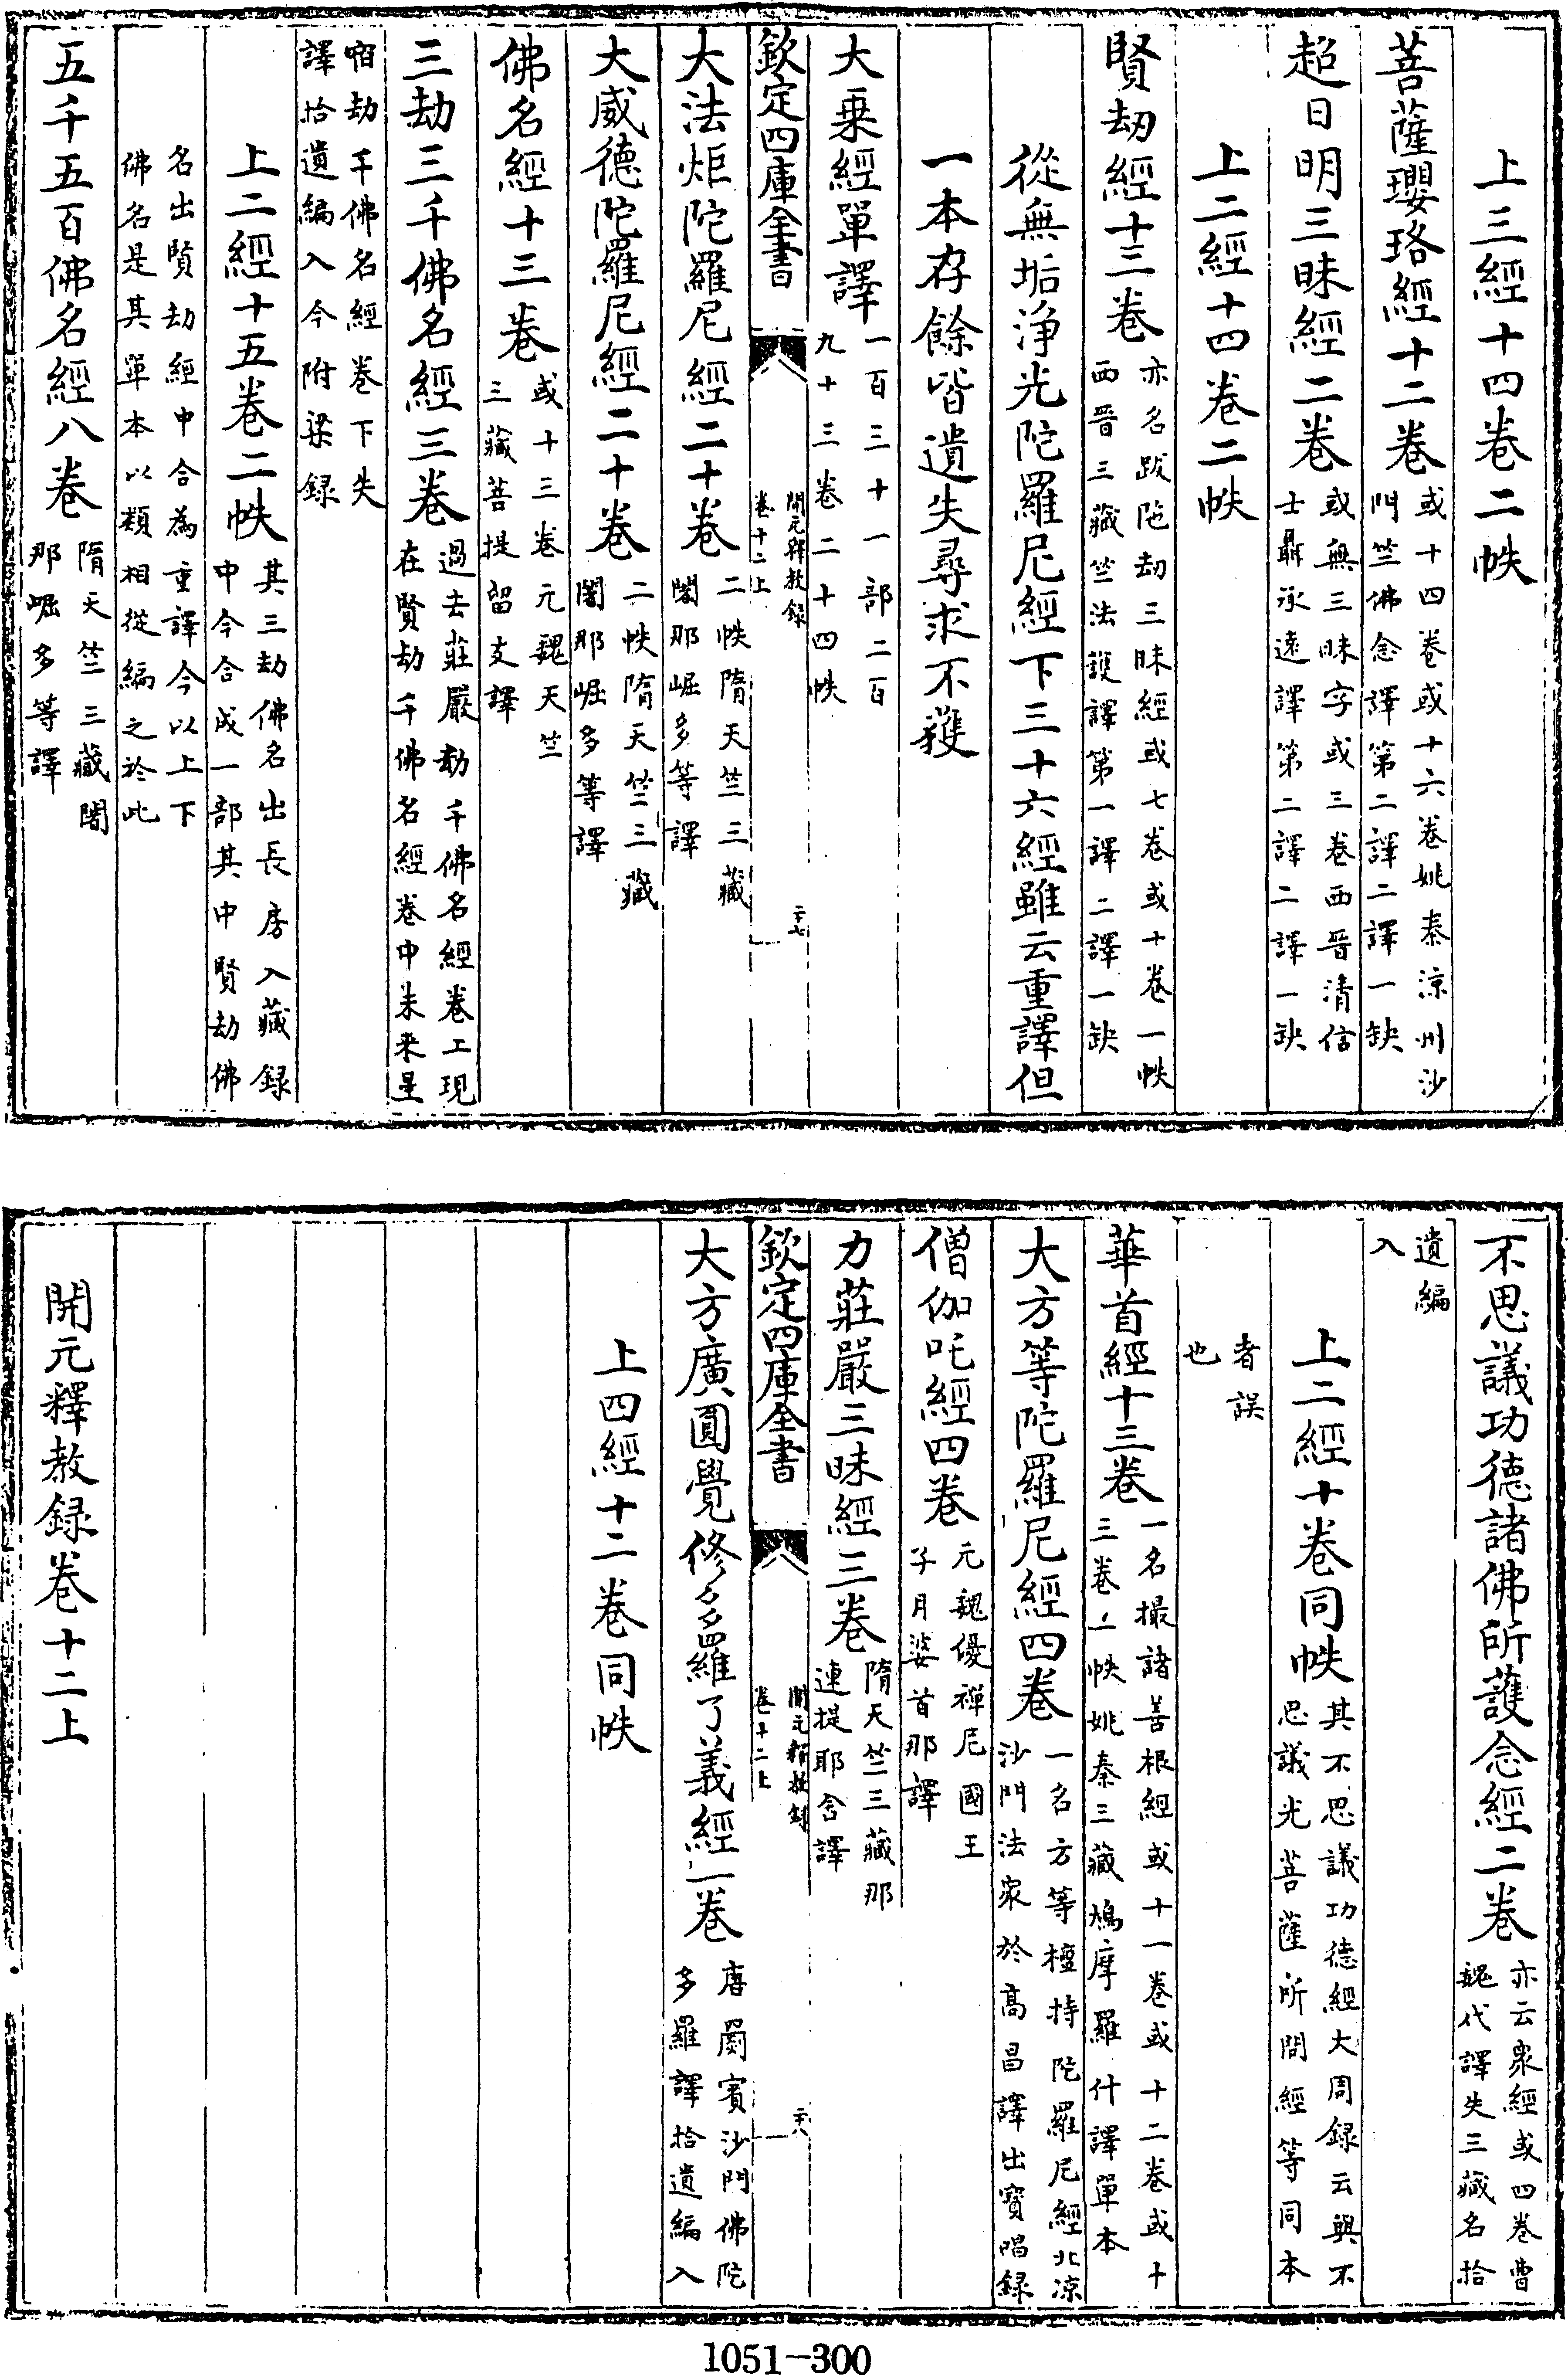 上三經十四卷二帙
菩薩瓔珞經十二卷或十四卷或十六卷姚秦涼州沙門竺佛念譯第二譯二譯一缺
超日明三昧經二卷或無三昧字或三卷西晉清信士聶承遠譯第二譯二譯一缺
上二經十四卷二帙
賢劫經十三卷亦名䟦陁劫三昧經或七卷或十卷一帙西晉三藏竺法護譯第一譯二譯一缺
從無垢淨光陀羅尼經下三十六經雖云重譯但
一本存餘皆遺失尋求不獲
大乗經單譯一百三十一部二百九十三卷二十四帙
欽定四庫全書
開元釋教録
卷十二上
二十七
大法炬陀羅尼經二十卷二帙隋天竺三藏闍那崛多等譯
大威德陀羅尼經二十卷二帙隋天竺三藏闍那崛多等譯
佛名經十三卷或十三卷元魏天竺三藏菩提留支譯
三劫三千佛名經三卷過去莊嚴劫千佛名經卷上現在賢劫千佛名經卷中未來星
宿劫千佛名經卷下失譯拾遺編入今附梁録
上二經十五卷二帙其三劫佛名出長房入藏録中今合成一部其中賢劫佛
名出賢劫經中合為重譯今以上下佛名是其單本以類相從編之於此
五千五百佛名經八卷隋天竺三藏闍那崛多等譯
不思議功德諸佛所護念經二卷亦云衆經或四卷曹魏代譯失三藏名拾
遺編入
上二經十卷同帙其不思議功德經大周録云與不思議光菩薩所問經等同本
者誤也
華首經十三卷一名撮諸善根經或十一卷或十二卷或十三卷二帙姚秦三藏鳩摩羅什譯單本
大方等陀羅尼經四卷一名方等檀持陀羅尼經北涼沙門法衆於高昌譯出寶唱録
僧伽吒經四卷元魏優禪尼國王子月婆首那譯
力莊嚴三昧經三卷隋天竺三藏那連提耶舍譯
欽定四庫全書
開元釋教録
卷十二上
二十八
大方廣圓覺修多羅了義經一卷唐罽賓沙門佛陀多羅譯拾遺編入
上四經十二卷同帙
開元釋教録卷十二上
1051-300